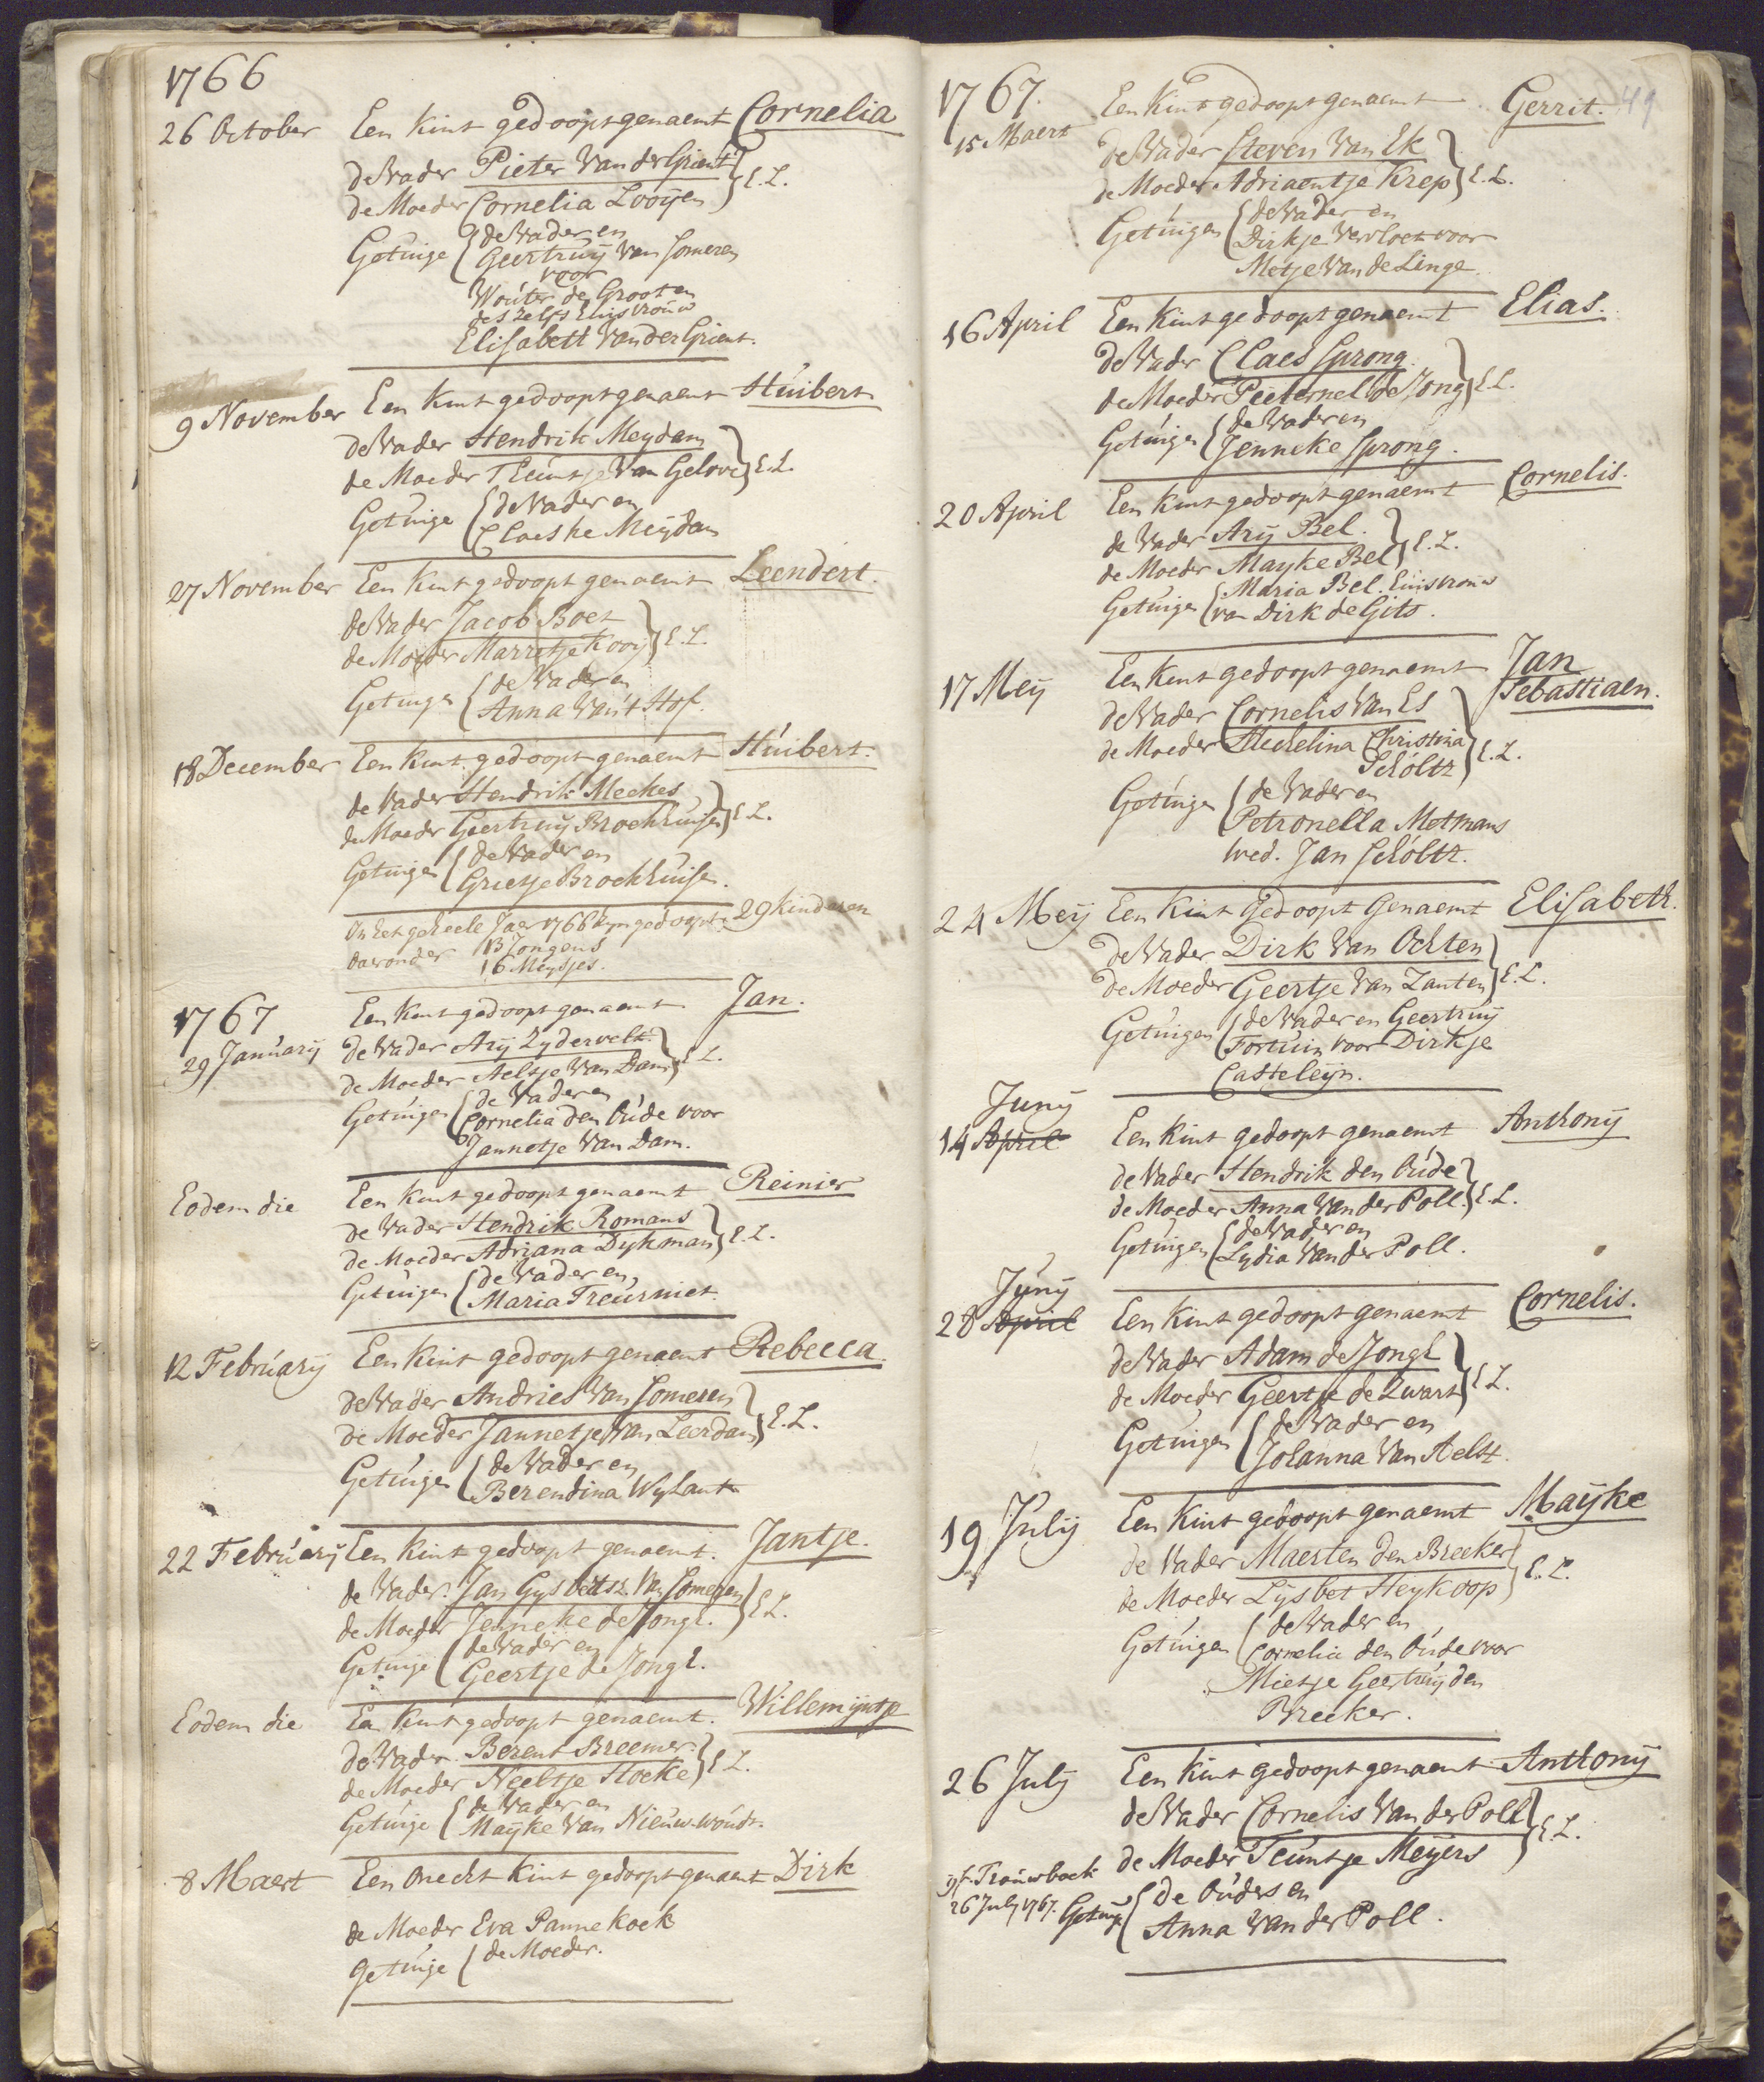 1766
26 October Een kint gedoopt genaemt Cornelia
de Vader Pieter Van der Grient
de Moeder Cornelia Looijen } E. L.
Getuige { de Vader en
Geertruij Van Someren
voor
Wouter de Groot en
deszelfs Huisvrouw
Elisabett Van der Grient.
9 November Een kint gedoopt genaemt Huibert
de Vader Hendrik Meydam
de Moeder Teuntje Van Gelove } E. L.
Getuige { de Vader en
Claeske Meijdam
27 November Een kint gedoopt genaemt Leendert.
de Vader Jacob Boet
de Moeder Marretje Kooij } E. L.
Getuige { de Vader en
Anna Van 't Hof.
18 December Een kint gedoopt genaemt Huibert.
de Vader Hendrik Meekes
de Moeder Geertruij Broekhuijsen } E L.
Getuigen { de Vader en
Grietje Broekhuise.
In het geheele Jaer 1766 zyn gedoopt 29 kinderen
daeronder 13 Jongens
16 Meysjes.
1767 Een kint gedoopt genaemt Jan.
29 Januarij de Vader Arij Zydervelt
de Moeder Aeltje Van Dam } E L.
Getuigen { de Vader en
Cornelia den Oude voor
Jannetje Van Dam.
Eodem die Een kint gedoopt genaemt Reinier
de Vader Hendrik Romans
de Moeder Adriana Dykman } E. L.
Getuigen { de Vader en
Maria Treurniet.
12 Februarij Een kint gedoopt genaemt Rebecca.
de Vader Andries Van Someren
de Moeder Jannetje Van Leerdam } E. L.
Getuige { de Vader en
Berendina Wylant
22 Februarij Een kint gedoopt genaemt. Jantje.
de Vader. Jan Gysbertsz. Van Someren
de Moeder Jenneke de Jongh. } E L.
Getuige { de Vader en
Geertje de Jongh.
Eodem die Een kint gedoopt genaemt. Willemijntje
de Vader. Berent Breemer.
de Moeder Neeltje Hoeke } E L.
Getuige { de Vader en
Maijke Van Nieuwwoudt.
8 Maert Een onecht kint gedoopt genaemt Dirk
de Moeder Eva Pannekoek
Getuige { de Moeder.
1767. Een kint gedoopt genaemt Gerrit. 49
15 Maert de Vader Steven Van Ek
de Moeder Adriaentje Krep } E. L.
Getuigen { de Vader en
Dirkje Vervloet voor
Metje Van de Linge.
16 April Een kint gedoopt genaemt Elias.
de Vader Claes Sprong
de Moeder Pieternel de Jong } E L.
Getuige { de Vader en
Jenneke Sprong.
20 April Een kint gedoopt genaemt Cornelis.
de Vader Arij Bel.
de Moeder Mayke Bel } E. L.
Getuigen { Maria Bel. Huisvrouw
van Dirk de Gits.
17 Meij Een kint gedoopt genaemt Jan
Sebastiaen.
de Vader Cornelis Van Es
de Moeder Hechelina Christina
Scholtz } E. L.
Getuigen { de Vader en
Petronella Metmans
Wed. Jan Scholtz.
24 Meij Een kint Gedoopt Genaemt Elisabeth.
de Vader Dirk Van Ochten
de Moeder Geertje Van Zanten } E. L.
Getuigen { de Vader en Geertruij
Fortuin voor Dirkje
Casteleyn.
Junij
14 April Een kint gedoopt genaemt Anthonij
de Vader Hendrik den Oude
de Moeder Anna Van der Poll. } E. L.
Getuigen { de Vader en
Lydia Van der Poll.
Junij
28 April Een kint gedoopt genaemt Cornelis.
de Vader Adam de Jongh
de Moeder Geertje de Zwart } E L.
Getuigen { de Vader en
Johanna Van Aelst.
19 Julij Een kint gedoopt genaemt Maijke
de Vader Maerten den Breeker
de Moeder Lijsbet Heykoop } E. L.
Getuigen { de Vader en
Cornelia den Oude voor
Mietje Geertruij den
Breeker.
26 July Een kint gedoopt genaemt Anthonij
de Vader Cornelis Van der Poll
de Moeder Teuntje Meijers } E. L.
Trouwboek
26 July 1767. Getuige { de Ouders en
Anna Van der Poll.